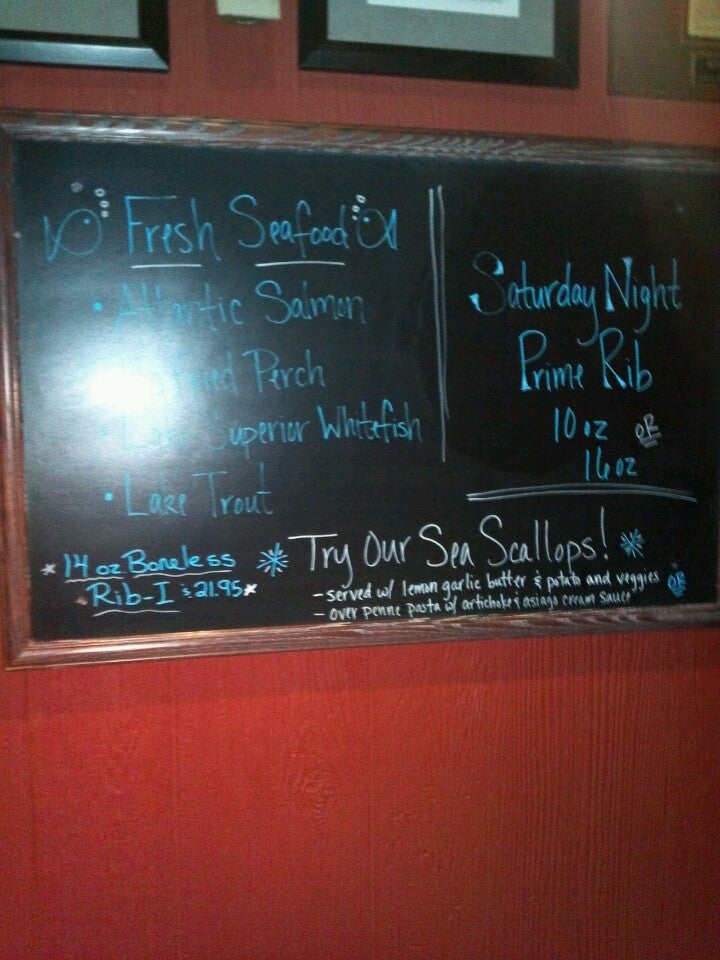 Fresh Seafood
• Atlantic Salmon
Perch
Superior Whitefish
• Lake Trout
Saturday Night
Prime Rib
10 oz OR
16 oz
* 14 oz Boneless
Rib-I $21.95 *
Try Our Sea Scallops!
- served w/ lemon garlic butter & potato and veggies OR
- over penne pasta w/ artichoke & asiago cream sauce